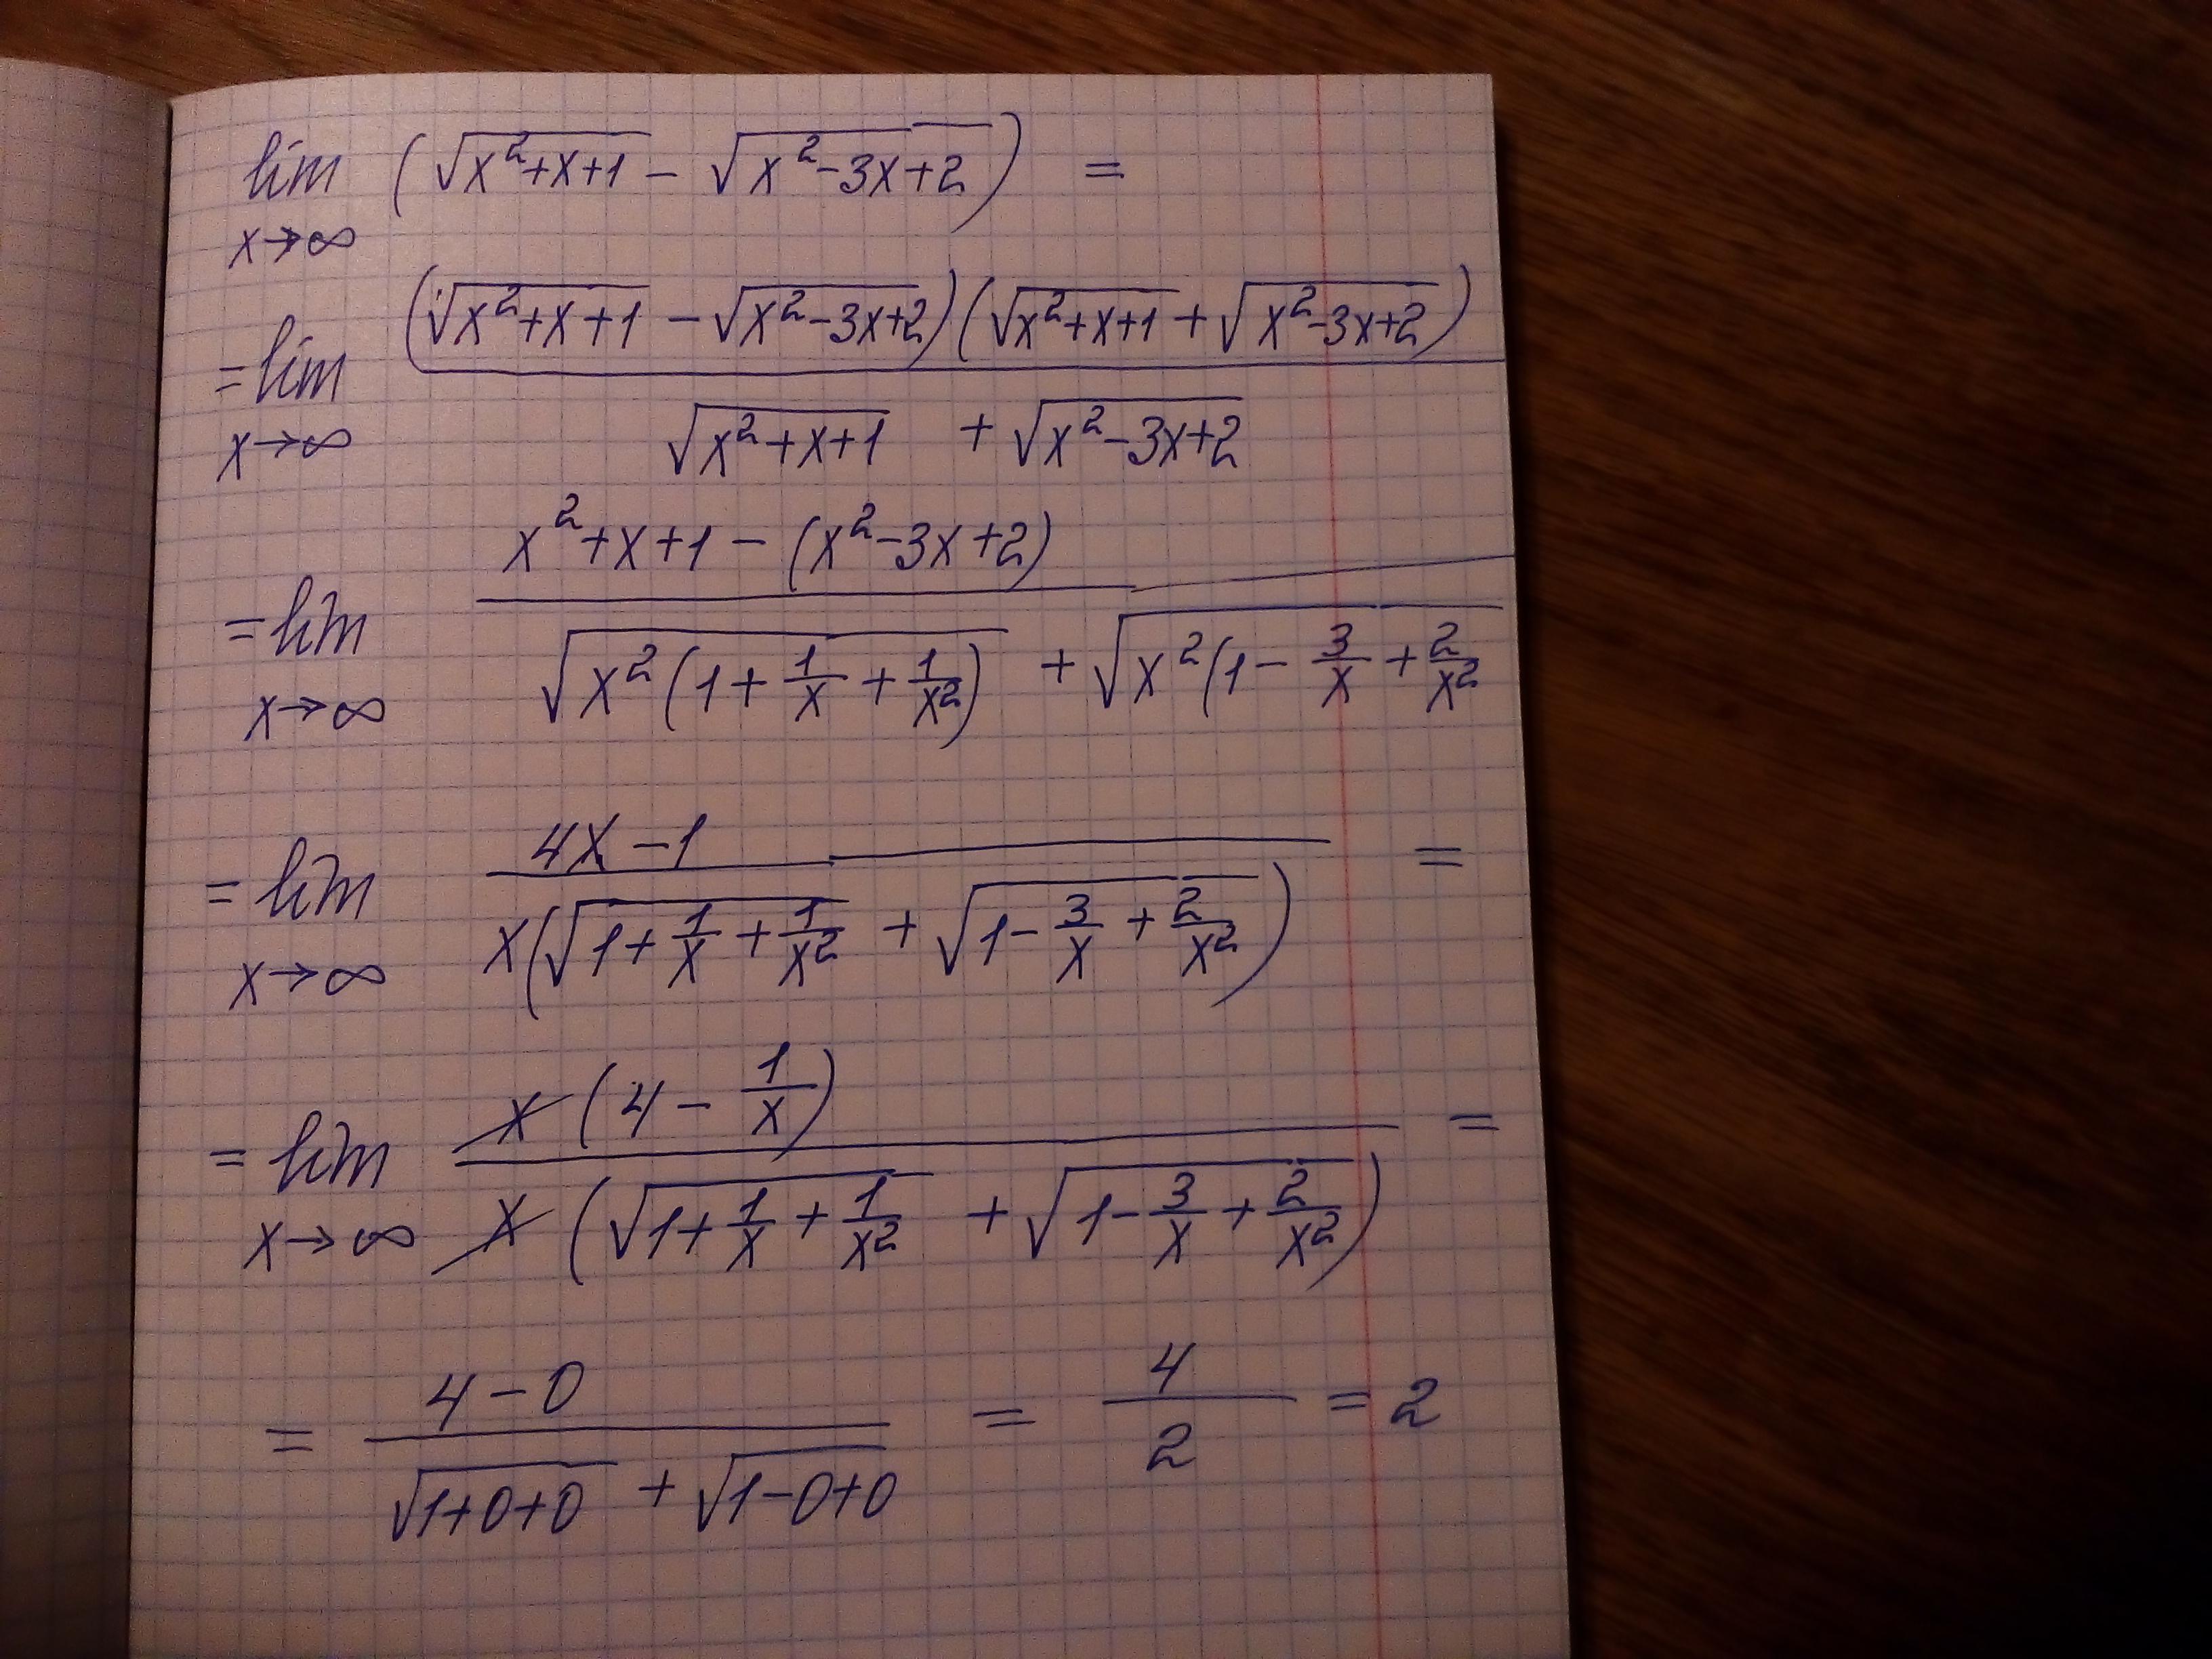 lim (√(x²+x+1) − √(x²−3x+2)) =
x→∞
= lim ((√(x²+x+1) − √(x²−3x+2))(√(x²+x+1) + √(x²−3x+2))) / (√(x²+x+1) + √(x²−3x+2))
x→∞
= lim (x²+x+1 − (x²−3x+2)) / (√(x²(1 + 1/x + 1/x²)) + √(x²(1 − 3/x + 2/x²
x→∞
= lim (4x − 1) / (x(√(1 + 1/x + 1/x²) + √(1 − 3/x + 2/x²))) =
x→∞
= lim (x(4 − 1/x)) / (x(√(1 + 1/x + 1/x²) + √(1 − 3/x + 2/x²))) =
x→∞
= (4 − 0) / (√(1+0+0) + √(1−0+0)) = 4/2 = 2